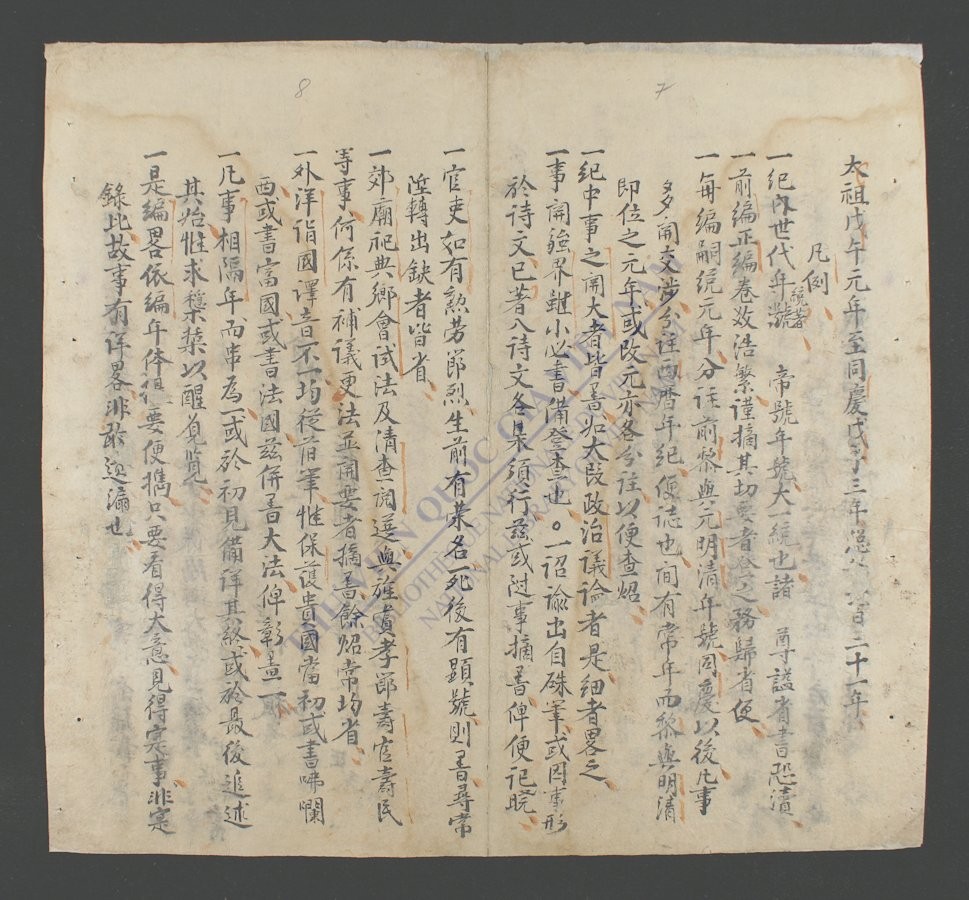 7
太祖戊午元年至同慶戊子三年□□□百三十一年
凡例
一紀內世代年號 帝號年號大一統也諸 尊謚省書恐瀆
一前編正編卷效浩繁謹摘其切要者□之務歸省便
一每編嗣統元年分註前黎與元明清年號同慶以後凡事
多開交涉分註西曆年紀便誌也間有常年而黎與明清
即位之元年或改元亦各分註以便查炤
一紀中事之開大者皆書如大段政治議論者是細者畧之
一事開强界雖小必書備登查也。一詔諭出自硃筆或因事形
於詩文已著入詩文各集須行茲或附事摘書俾便記曉
8
一官吏如有勲劳節烈生前有荣名死後有顯號則書尋常
陞轉出缺者皆省
一郊廟祀典鄉會試法及清查簡選與旌賞孝節壽官壽民
等事何係有補議更法並開要者摘書餘炤常均省
一外洋諸國譯音不一均從前筆惟保護貴國當初或書咈囒
西或書富國或書法國茲併書大法俾彰畫一
一凡事相隔年而串為一或於初見備詳其終或於最後追述
其始惟求穙㯫以醒見覽
一是編畧依編年体但要便攜只要看得大意見得寔事非寔
錄比故事有詳畧非敢迩漏也